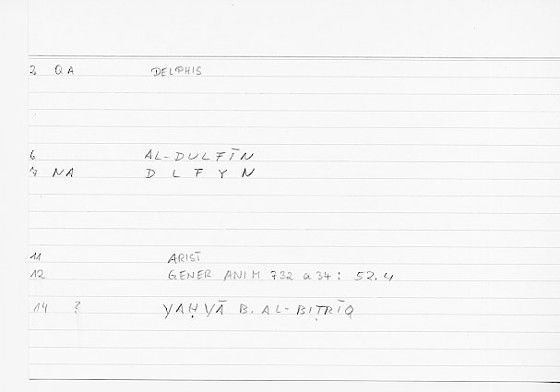 2 QA DELPHIS
6 AL-DULFĪN
7 NA D L F Y N
11 ARIST
12 GENER ANIM 732 a 34 : 52.4
14 ? YAḤYĀ B. AL-BIṬRĪQ